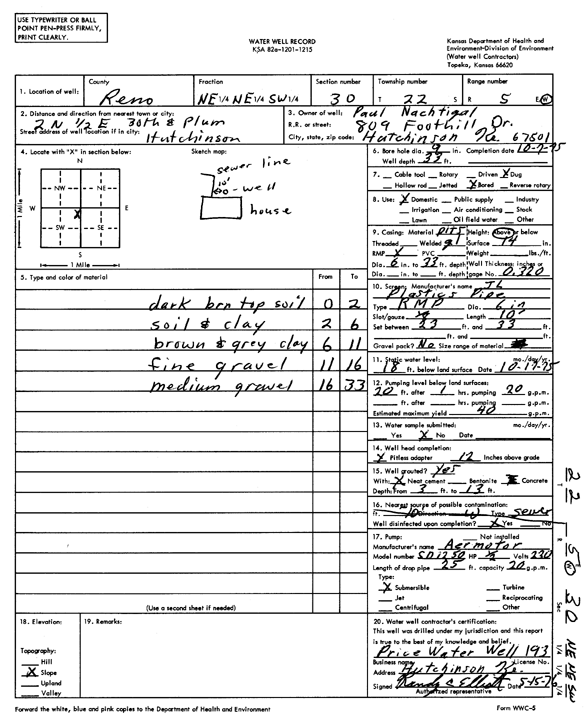 USE TYPEWRITER OR BALL
POINT PEN-PRESS FIRMLY,
PRINT CLEARLY.
WATER WELL RECORD
KSA 82a-1201-1215
Kansas Department of Health and
Environment-Division of Environment
(Water well Contractors)
Topeka, Kansas 66620
1. Location of well: County Reno Fraction NE 1/4 NE 1/4 SW 1/4 Section number 30 Township number T 22 S Range number R 5 E/W
2. Distance and direction from nearest town or city: 2 N 1/2 E 30th & Plum
Street address of well location if in city: Hutchinson
3. Owner of well: Paul Nachtigal
R.R. or street: 809 Foothill Dr.
City, state, zip code: Hutchinson Ks. 67501
4. Locate with "X" in section below:
N
NW NE
W X E
SW SE
S
1 Mile
1 Mile
Sketch map:
sewer line
10'
well
house
6. Bore hole dia. 9 in. Completion date 10-7-75
Well depth 33 ft.
7. Cable tool Rotary Driven X Dug
Hollow rod Jetted X Bored Reverse rotary
8. Use: X Domestic Public supply Industry
Irrigation Air conditioning Stock
Lawn Oil field water Other
9. Casing: Material Height: Above or below
Threaded Welded Surface 14 in.
RMP X PVC Weight lbs./ft.
Dia. 6 in. to 33 ft. depth Wall Thickness: inches or
Dia. in. to ft. depth gage No. 0.320
5. Type and color of material From To
dark brn top soil 0 2
soil & clay 2 6
brown & grey clay 6 11
fine gravel 11 16
medium gravel 16 33
10. Screen: Manufacturer's name
Plastics Pipe
Type RMP Dia. 6 in
Slot/gauze Length 10'
Set between 23 ft. and 33 ft.
ft. and ft.
Gravel pack? No Size range of material
11. Static water level: mo./day/yr.
18 ft. below land surface Date 10-17-75
12. Pumping level below land surfaces:
20 ft. after 1 hrs. pumping 20 g.p.m.
ft. after hrs. pumping g.p.m.
Estimated maximum yield 40 g.p.m.
13. Water sample submitted: mo./day/yr.
Yes X No Date
14. Well head completion:
X Pitless adapter 12 Inches above grade
15. Well grouted? Yes
With: X Neat cement Bentonite Concrete
Depth: From 3 ft. to 13 ft.
16. Nearest source of possible contamination:
ft. 10 Direction W Type sewer
Well disinfected upon completion? X Yes No
17. Pump: Not installed
Manufacturer's name Aermotor
Model number HP 1/2 Volts 230
Length of drop pipe 25 ft. capacity 20 g.p.m.
Type:
X Submersible Turbine
Jet Reciprocating
Centrifugal Other
(Use a second sheet if needed)
18. Elevation:
Topography:
Hill
X Slope
Upland
Valley
19. Remarks:
20. Water well contractor's certification:
This well was drilled under my jurisdiction and this report
is true to the best of my knowledge and belief.
Price Water Well 193
Business name License No.
Address Hutchinson Ks.
Signed Randy C Elliott Date 5-15-76
Authorized representative
22
5 W
Sec 30
1/4 1/4 1/4 NE NE SW
Forward the white, blue and pink copies to the Department of Health and Environment
Form WWC-5